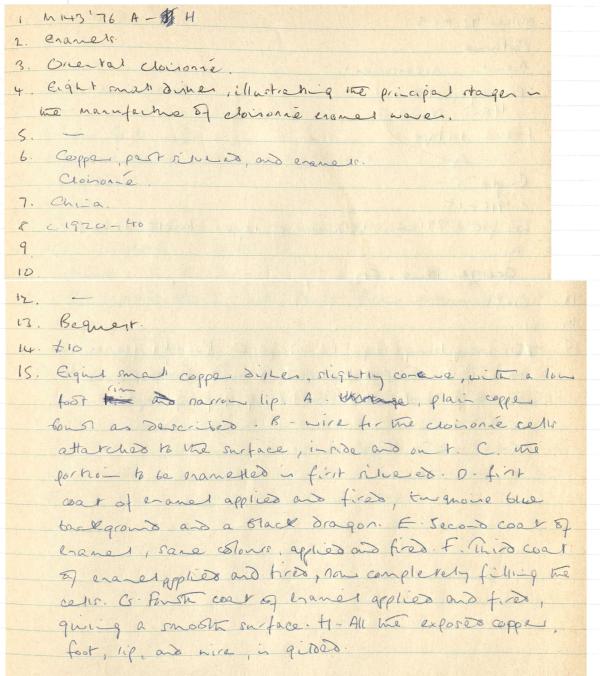 1 M143'76 A - H
2. enamels.
3. Oriental cloisonné.
4. Eight small dishes, illustrating the principal stages in
the manufacture of cloisonné enamel wares.
5. —
6. Copper, part silvered, and enamels.
Cloisonné.
7. China.
8 c. 1920-40
9
10
12. —
13. Bequest.
14. £10
15. Eight small copper dishes, slightly concave, with a low
foot rim and narrow lip. A. plain copper
bowl as described. B - wire for the cloisonné cells
attatched to the surface, inside and out. C. the
portion to be enamelled is first silvered. D. first
coat of enamel applied and fired, turquoise blue
background and a black dragon. E. Second coat of
enamel, same colours, applied and fired. F. Third coat
of enamel applied and fired, now completely filling the
cells. G. Fourth coat of enamel applied and fired,
giving a smooth surface. H - All the exposed copper,
foot, lip, and wire, is gilded.